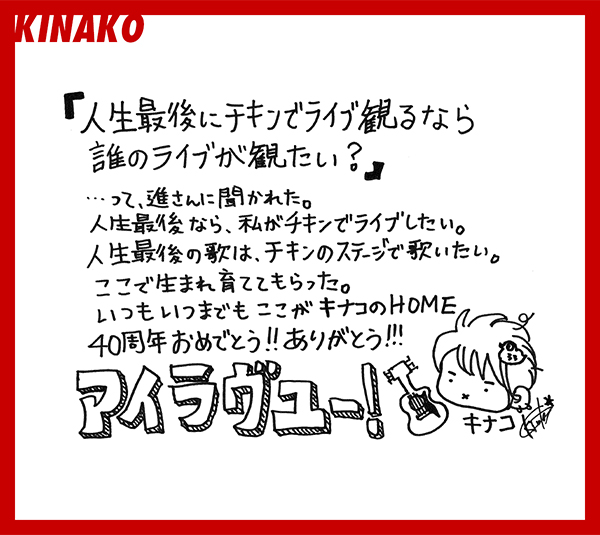 KINAKO
『人生最後にチキンでライブ観るなら
誰のライブが観たい？』
…って、進さんに聞かれた。
人生最後なら、私がチキンでライブしたい。
人生最後の歌は、チキンのステージで歌いたい。
ここで生まれ育ててもらった。
いつもいつまでもここがキナコのHOME
40周年おめでとう!!ありがとう!!!
アイラヴユー!
キナコ